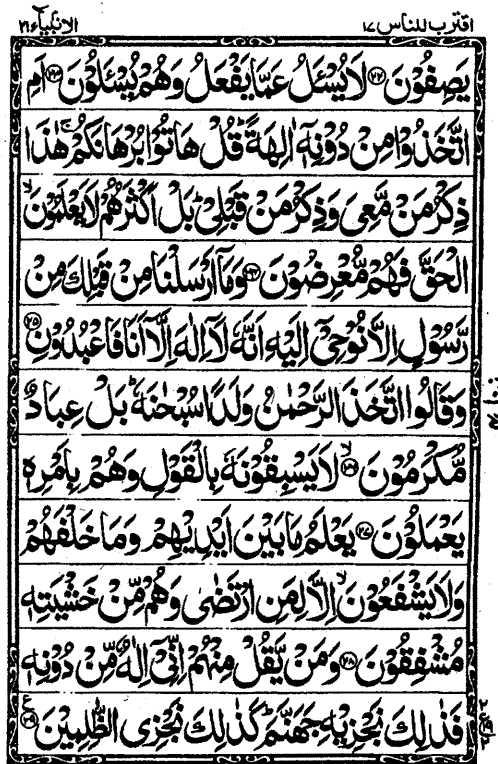 اقترب للناس ١٧ الانبیاء ٢١
يَصِفُوْنَ ﴿٢٢﴾ لَا يُسْـَٔلُ عَمَّا يَفْعَلُ وَهُمْ يُسْـَٔلُوْنَ ﴿٢٣﴾ اَمِ
اتَّخَذُوْا مِنْ دُوْنِهٖۤ اٰلِهَةً ؕ قُلْ هَاتُوْا بُرْهَانَكُمْ ۚ هٰذَا
ذِكْرُ مَنْ مَّعِیَ وَذِكْرُ مَنْ قَبْلِیْ ؕ بَلْ اَكْثَرُهُمْ لَا يَعْلَمُوْنَ ۙ
الْحَقَّ فَهُمْ مُّعْرِضُوْنَ ﴿٢٤﴾ وَمَاۤ اَرْسَلْنَا مِنْ قَبْلِكَ مِنْ
رَّسُوْلٍ اِلَّا نُوْحِیْۤ اِلَيْهِ اَنَّهٗ لَاۤ اِلٰهَ اِلَّاۤ اَنَا فَاعْبُدُوْنِ ﴿٢٥﴾
وَقَالُوا اتَّخَذَ الرَّحْمٰنُ وَلَدًا سُبْحٰنَهٗ ؕ بَلْ عِبَادٌ
مُّكْرَمُوْنَ ﴿٢٦﴾ ۙ لَا يَسْبِقُوْنَهٗ بِالْقَوْلِ وَهُمْ بِاَمْرِهٖ
يَعْمَلُوْنَ ﴿٢٧﴾ يَعْلَمُ مَا بَيْنَ اَيْدِيْهِمْ وَمَا خَلْفَهُمْ
وَلَا يَشْفَعُوْنَ ۙ اِلَّا لِمَنِ ارْتَضٰی وَهُمْ مِّنْ خَشْيَتِهٖ
مُشْفِقُوْنَ ﴿٢٨﴾ وَمَنْ يَّقُلْ مِنْهُمْ اِنِّیْۤ اِلٰهٌ مِّنْ دُوْنِهٖ
فَذٰلِكَ نَجْزِيْهِ جَهَنَّمَ ؕ كَذٰلِكَ نَجْزِی الظّٰلِمِيْنَ ﴿٢٩﴾